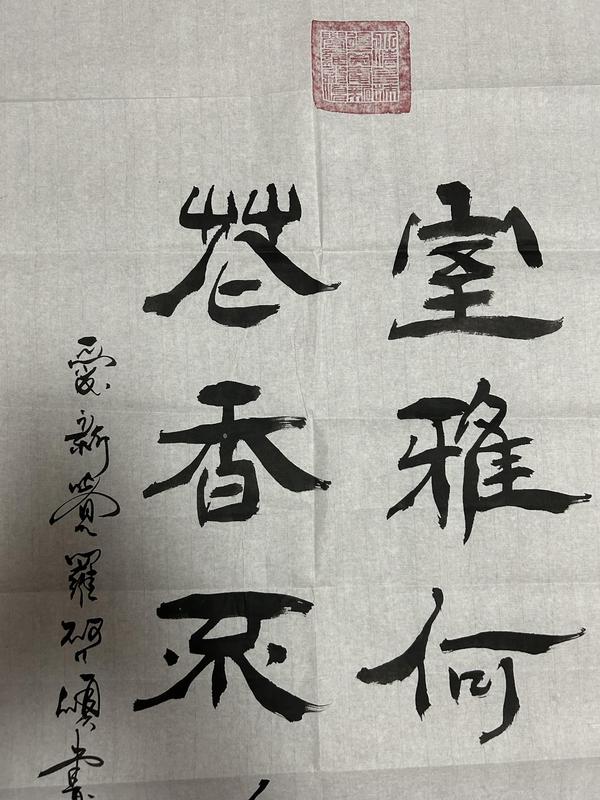 室雅何
花香不
愛新覺羅
書